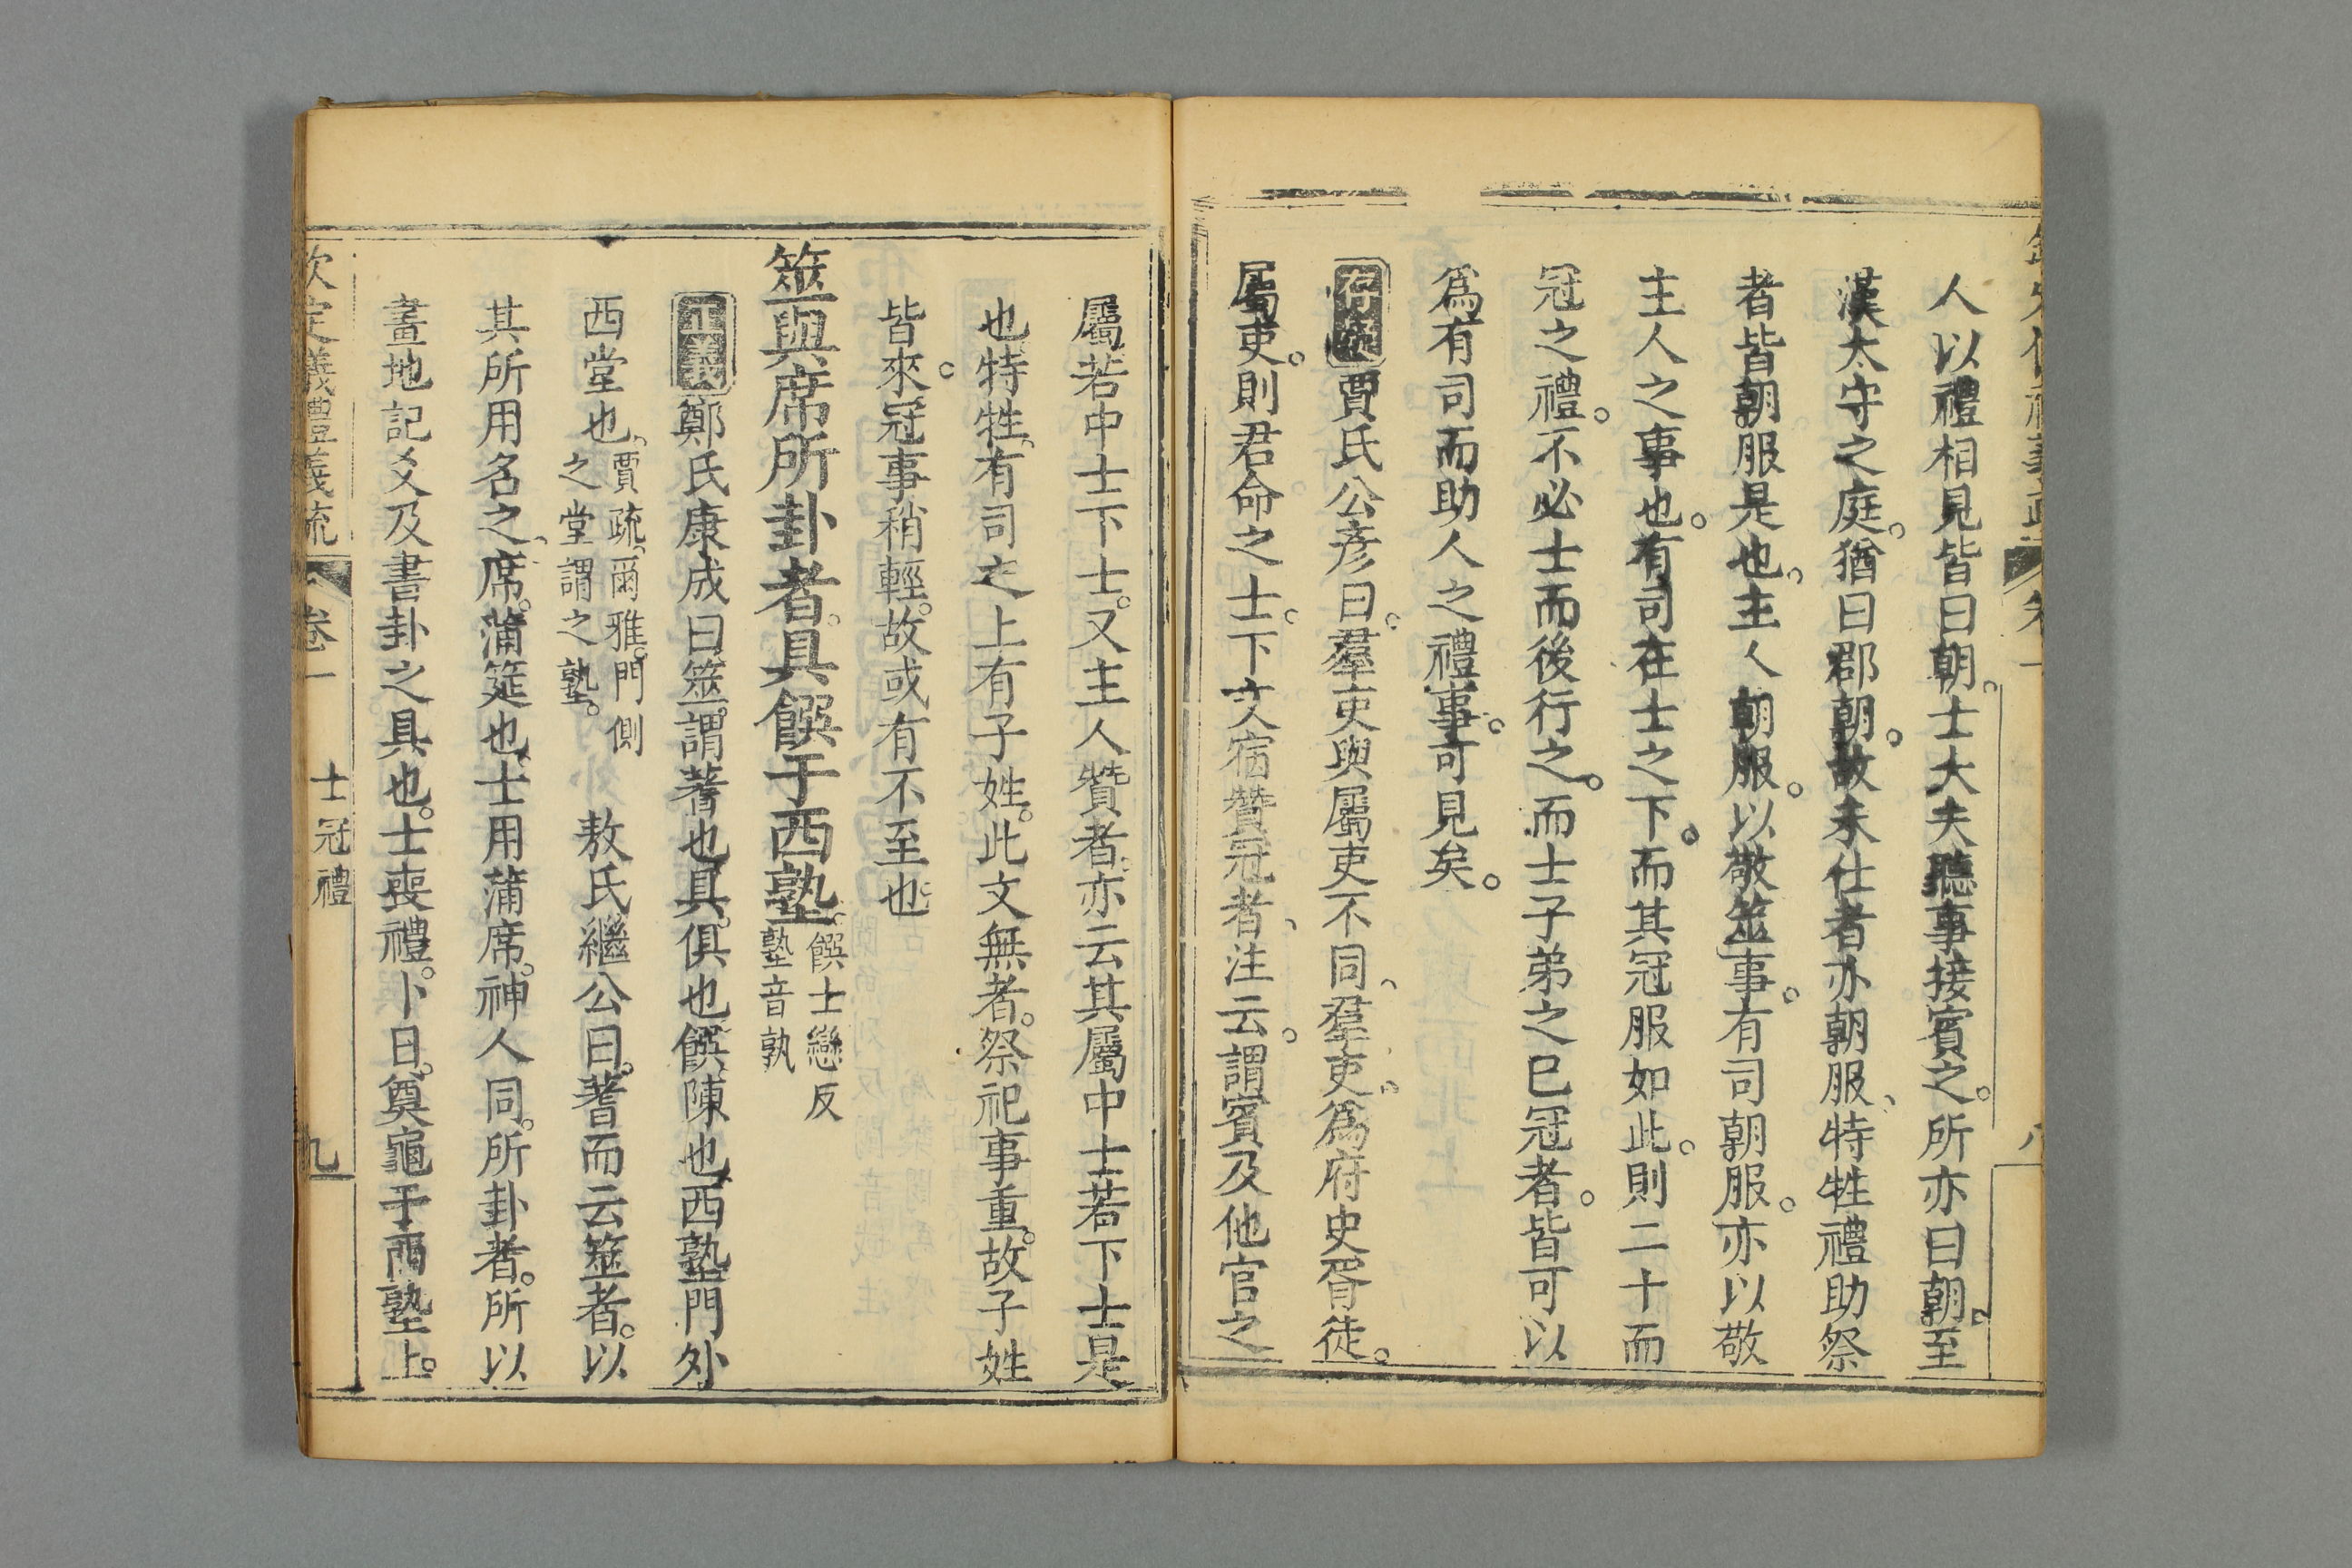 人以禮相見皆曰朝。士大夫聽事接賓之。所亦曰朝。至
漢太守之庭。猶曰郡朝。故未仕者亦朝服、特牲禮助祭
者皆朝服是也。主人朝服。以敬筮事。有司朝服。亦以敬
主人之事也。有司在士之下。而其冠服如此。則二十而
冠之禮。不必士而後行之。而士子弟之已冠者。皆可以
爲有司而助人之禮事。可見矣。
存疑賈氏公彦曰。羣吏與屬吏不同、羣吏。爲府史胥徒。
屬吏。則君命之士。下文宿贊冠者、注云。謂賓及他官之
屬若中士下士。又主人贊者。亦云其屬中士若下士是
也、特牲、有司之上有子姓。此文無者。祭祀事重。故子姓
皆來。冠事稍輕。故或有不至也
筮與席所卦者。具饌于西塾。饌士戀反
塾音孰
正義鄭氏康成曰筮。謂蓍也。具。俱也。饌。陳也。西塾。門外
西堂也。賈疏、爾雅。門側
之堂謂之塾。敖氏繼公曰。蓍而云筮者。以
其所用名之、席。蒲筵也。士用蒲席。神人同。所卦者。所以
畫地記爻及書卦之具也。士喪禮。卜日。奠龜于西塾上。
欽定儀禮義疏 卷一 士冠禮 九